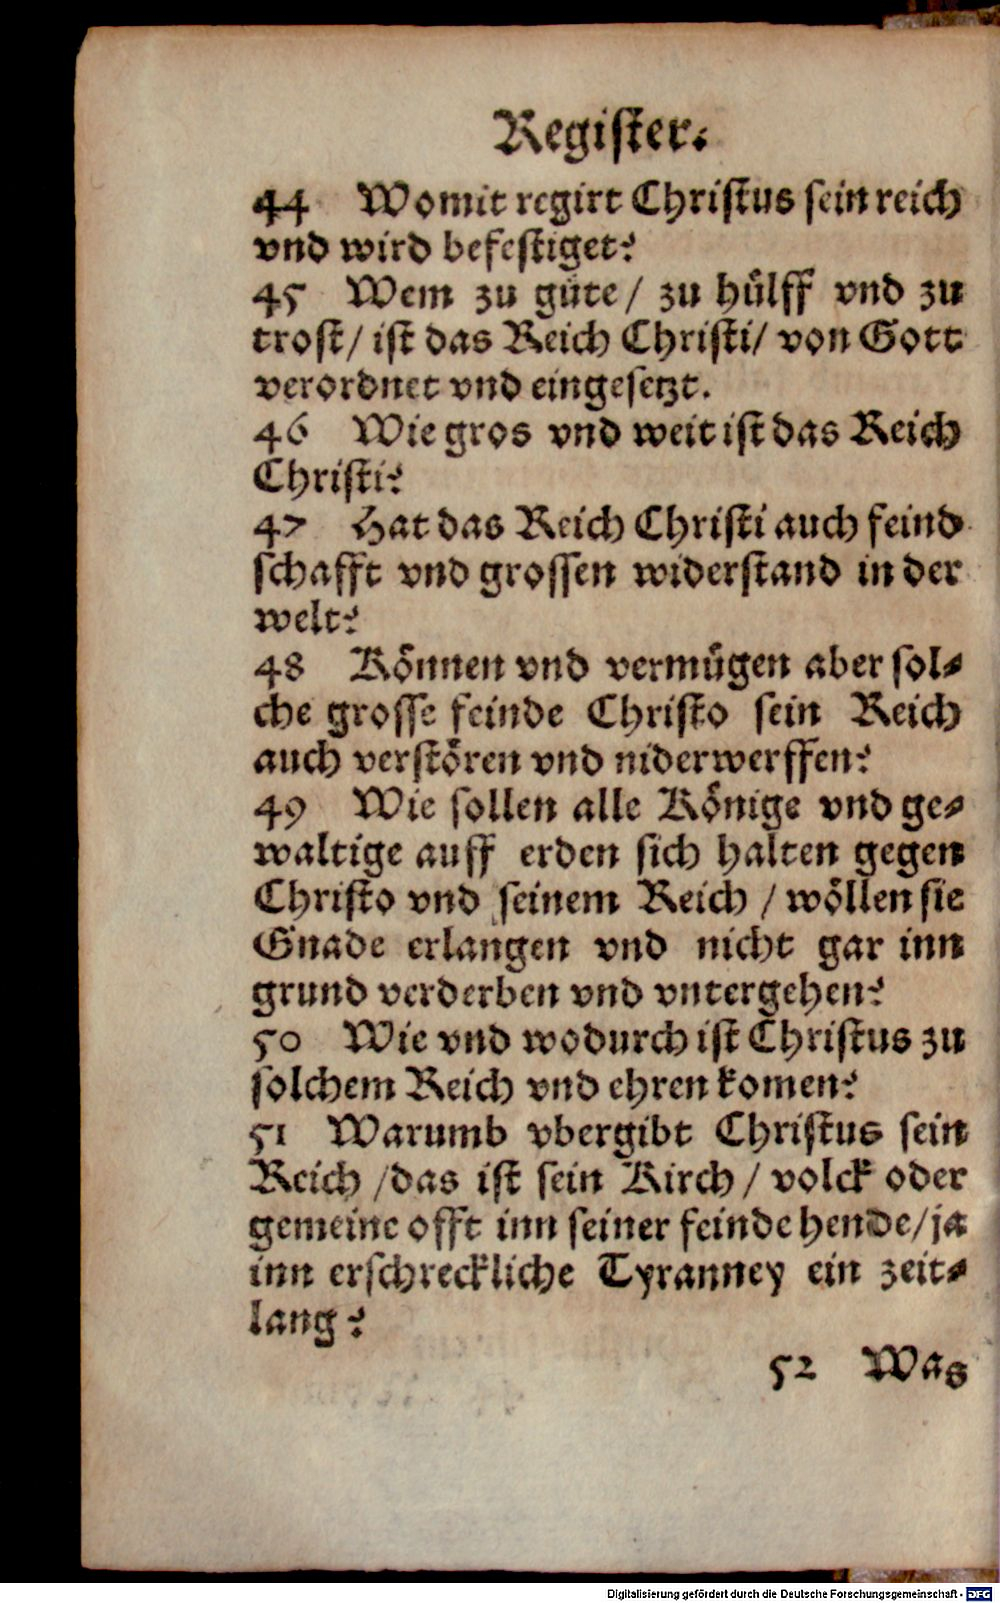 Register.
44 Womit regirt Christus sein reich
vnd wird befestiget?
45 Wem zu güte / zu hülff vnd zu
trost / ist das Reich Christi / von Gott
verordnet vnd eingesetzt.
46 Wie gros vnd weit ist das Reich
Christi?
47 Hat das Reich Christi auch feind
schafft vnd grossen widerstand in der
welt?
48 Können vnd vermügen aber sol⸗
che grosse feinde Christo sein Reich
auch verstören vnd niderwerffen?
49 Wie sollen alle Könige vnd ge⸗
waltige auff erden sich halten gegen
Christo vnd seinem Reich / wöllen sie
Gnade erlangen vnd nicht gar inn
grund verderben vnd vntergehen?
50 Wie vnd wodurch ist Christus zu
solchem Reich vnd ehren komen?
51 Warumb vbergibt Christus sein
Reich / das ist sein Kirch / volck oder
gemeine offt inn seiner feinde hende / ja
inn erschreckliche Tyranney ein zeit⸗
lang?
52 Was
Digitalisierung gefördert durch die Deutsche Forschungsgemeinschaft - DFG